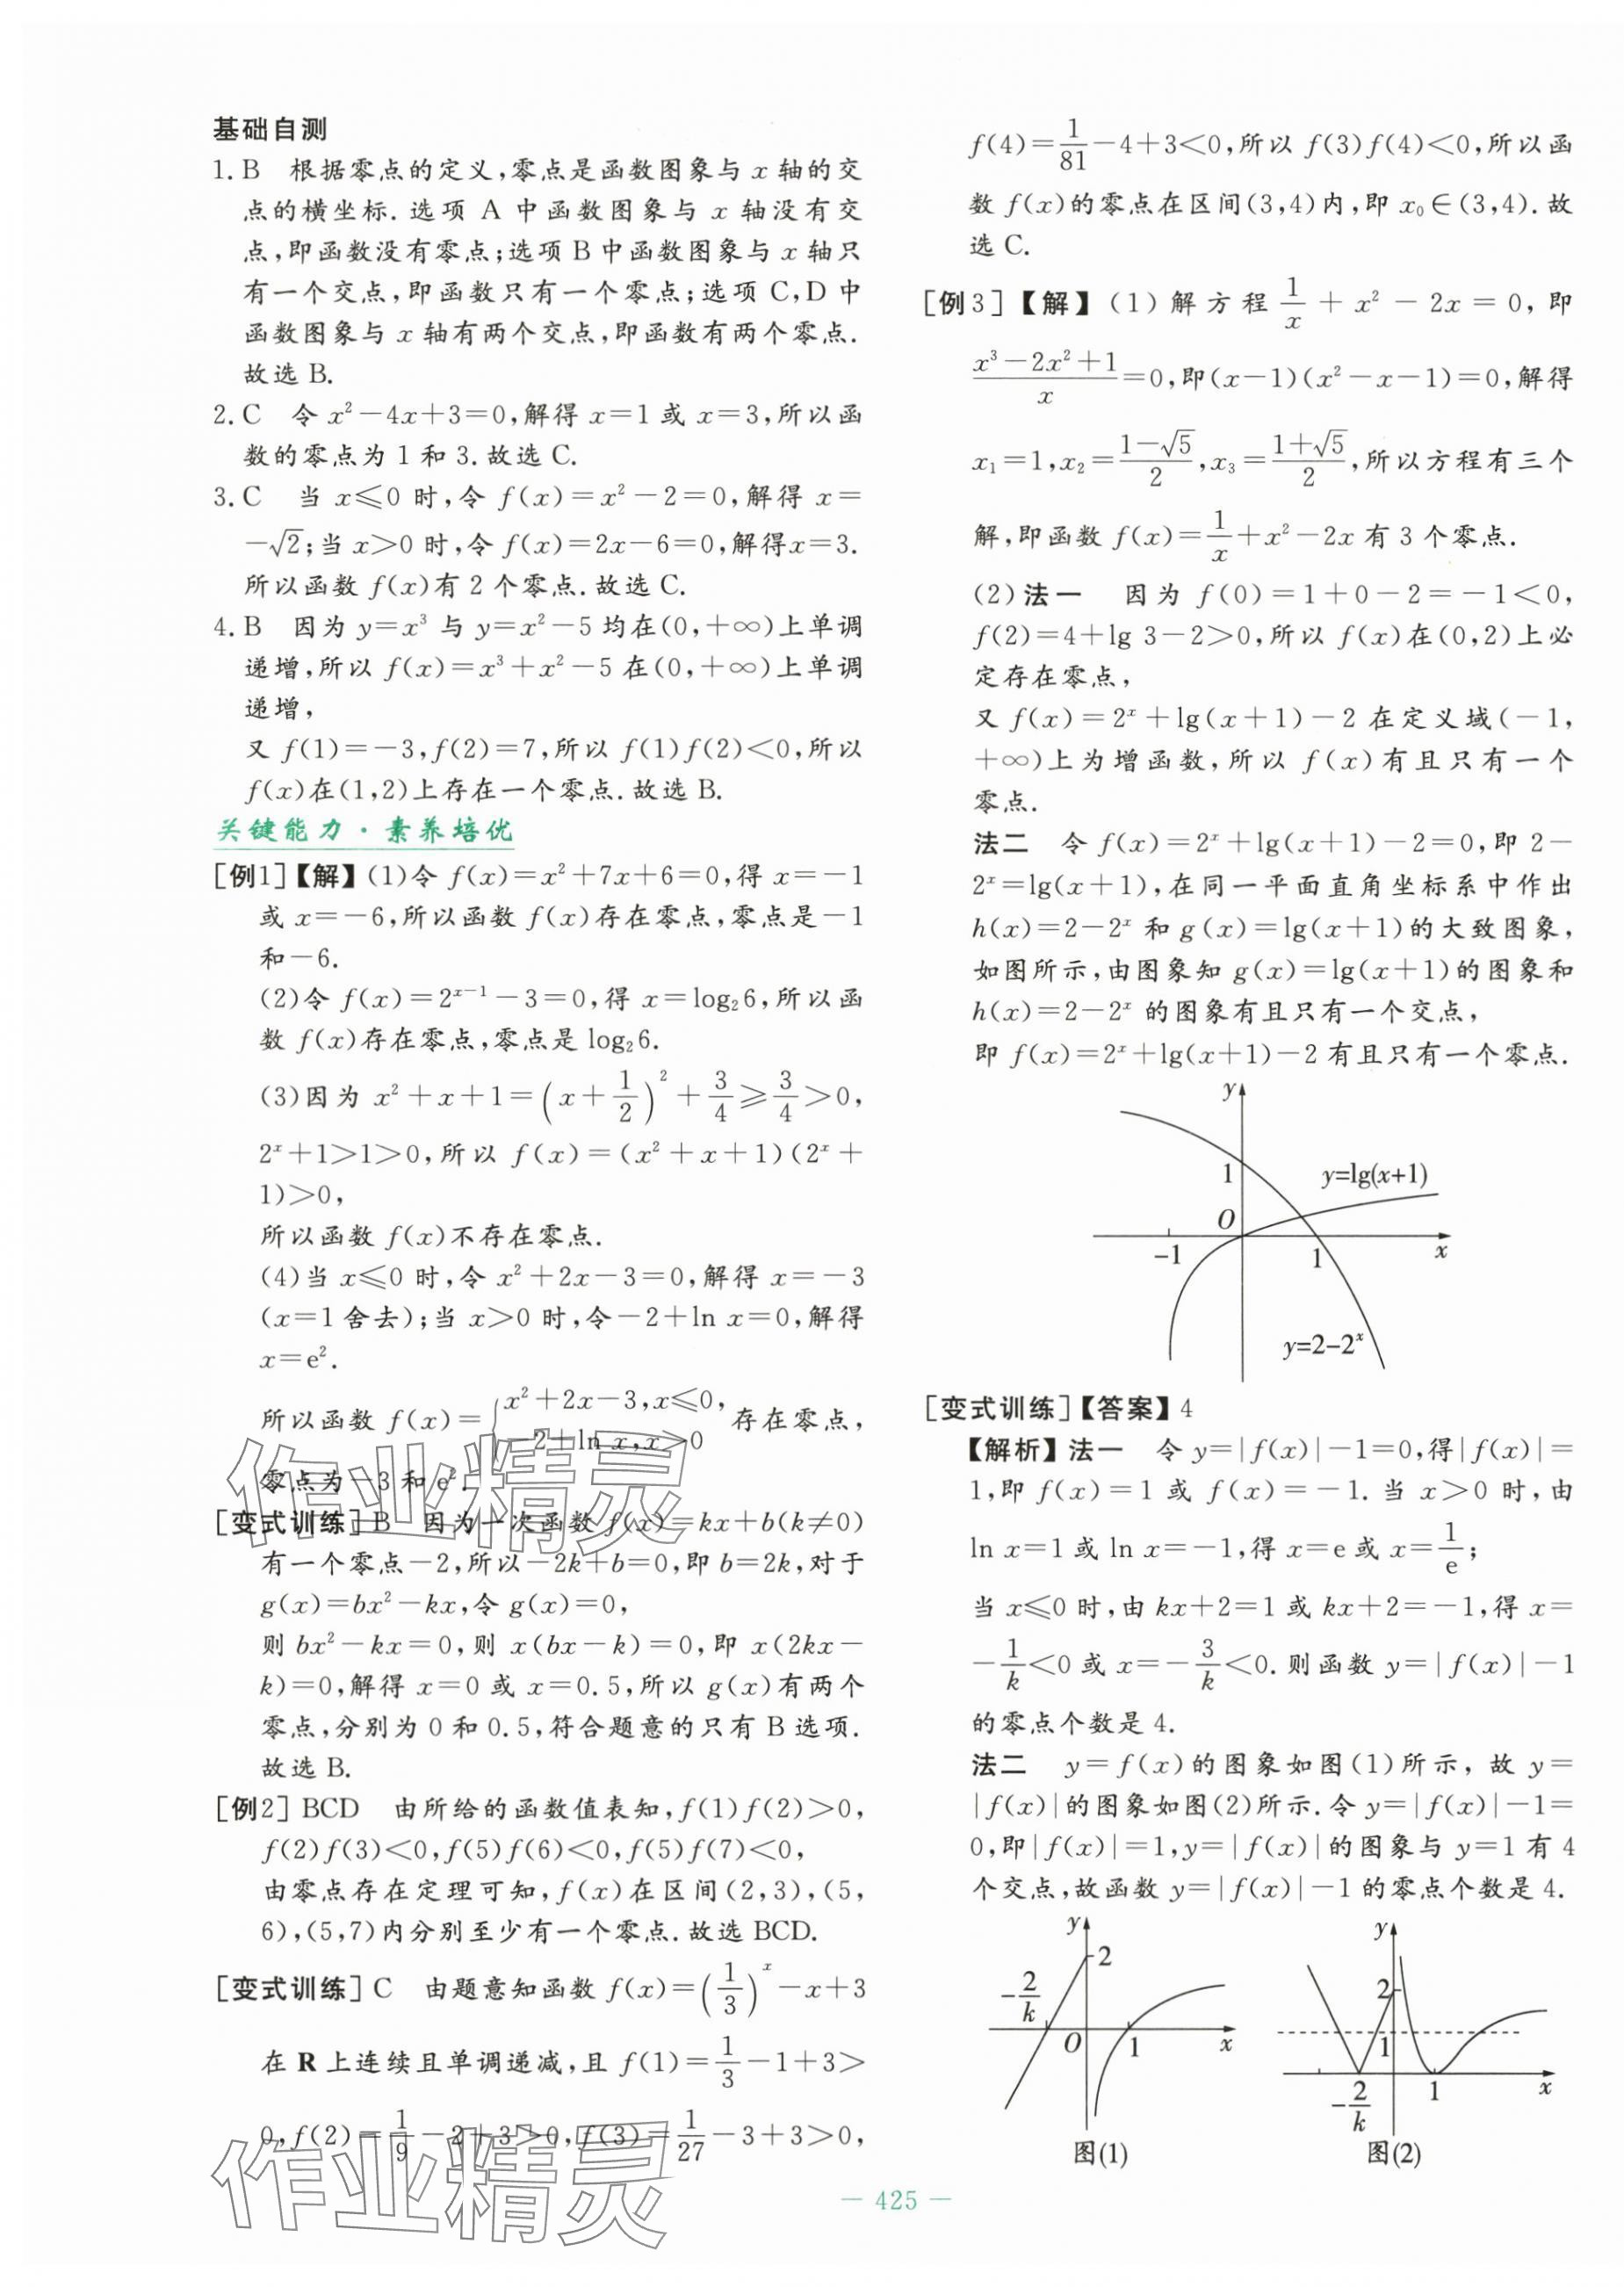 基础自测
1.B 根据零点的定义,零点是函数图象与 x 轴的交
点的横坐标.选项 A 中函数图象与 x 轴没有交
点,即函数没有零点;选项 B 中函数图象与 x 轴只
有一个交点,即函数只有一个零点;选项 C,D 中
函数图象与 x 轴有两个交点,即函数有两个零点.
故选 B.
2.C 令 x²-4x+3=0,解得 x=1 或 x=3,所以函
数的零点为 1 和 3.故选 C.
3.C 当 x≤0 时,令 f(x)=x²-2=0,解得 x=
-√2;当 x>0 时,令 f(x)=2x-6=0,解得x=3.
所以函数 f(x)有 2 个零点.故选 C.
4.B 因为 y=x³ 与 y=x²-5 均在(0,+∞)上单调
递增,所以 f(x)=x³+x²-5 在(0,+∞)上单调
递增,
又 f(1)=-3,f(2)=7,所以 f(1)f(2)<0,所以
f(x)在(1,2)上存在一个零点.故选 B.
关键能力·素养培优
[例1]【解】(1)令 f(x)=x²+7x+6=0,得 x=-1
或 x=-6,所以函数 f(x)存在零点,零点是-1
和-6.
(2)令 f(x)=2ˣ⁻¹-3=0,得 x=log₂6,所以函
数 f(x)存在零点,零点是 log₂6.
(3)因为 x²+x+1=(x+1/2)²+3/4≥3/4>0,
2ˣ+1>1>0,所以 f(x)=(x²+x+1)(2ˣ+
1)>0,
所以函数 f(x)不存在零点.
(4)当 x≤0 时,令 x²+2x-3=0,解得 x=-3
(x=1 舍去);当 x>0 时,令-2+ln x=0,解得
x=e².
所以函数 f(x)={x²+2x-3,x≤0, -2+ln x,x>0 存在零点,
零点为-3 和 e².
[变式训练]B 因为一次函数 f(x)=kx+b(k≠0)
有一个零点-2,所以-2k+b=0,即 b=2k,对于
g(x)=bx²-kx,令 g(x)=0,
则 bx²-kx=0,则 x(bx-k)=0,即 x(2kx-
k)=0,解得 x=0 或 x=0.5,所以 g(x)有两个
零点,分别为 0 和 0.5,符合题意的只有 B 选项.
故选 B.
[例2] BCD 由所给的函数值表知,f(1)f(2)>0,
f(2)f(3)<0,f(5)f(6)<0,f(5)f(7)<0,
由零点存在定理可知,f(x)在区间(2,3),(5,
6),(5,7)内分别至少有一个零点.故选 BCD.
[变式训练]C 由题意知函数 f(x)=(1/3)ˣ-x+3
在 R 上连续且单调递减,且 f(1)=1/3-1+3>
0,f(2)=1/9-2+3>0,f(3)=1/27-3+3>0,
f(4)=1/81-4+3<0,所以 f(3)f(4)<0,所以函
数 f(x)的零点在区间(3,4)内,即 x₀∈(3,4).故
选 C.
[例3]【解】(1)解方程 1/x+x²-2x=0,即
(x³-2x²+1)/x=0,即(x-1)(x²-x-1)=0,解得
x₁=1,x₂=(1-√5)/2,x₃=(1+√5)/2,所以方程有三个
解,即函数 f(x)=1/x+x²-2x 有 3 个零点.
(2)法一 因为 f(0)=1+0-2=-1<0,
f(2)=4+lg 3-2>0,所以 f(x)在(0,2)上必
定存在零点,
又 f(x)=2ˣ+lg(x+1)-2 在定义域(-1,
+∞)上为增函数,所以 f(x)有且只有一个
零点.
法二 令 f(x)=2ˣ+lg(x+1)-2=0,即 2-
2ˣ=lg(x+1),在同一平面直角坐标系中作出
h(x)=2-2ˣ 和 g(x)=lg(x+1)的大致图象,
如图所示,由图象知 g(x)=lg(x+1)的图象和
h(x)=2-2ˣ 的图象有且只有一个交点,
即 f(x)=2ˣ+lg(x+1)-2 有且只有一个零点.
y
1
y=lg(x+1)
O
-1
1
x
y=2-2ˣ
[变式训练]【答案】4
【解析】法一 令 y=|f(x)|-1=0,得|f(x)|=
1,即 f(x)=1 或 f(x)=-1.当 x>0 时,由
ln x=1 或 ln x=-1,得 x=e 或 x=1/e;
当 x≤0 时,由 kx+2=1 或 kx+2=-1,得 x=
-1/k<0 或 x=-3/k<0.则函数 y=|f(x)|-1
的零点个数是 4.
法二 y=f(x)的图象如图(1)所示,故 y=
|f(x)|的图象如图(2)所示.令 y=|f(x)|-1=
0,即|f(x)|=1,y=|f(x)|的图象与 y=1 有 4
个交点,故函数 y=|f(x)|-1 的零点个数是 4.
y
2
-2/k
O
1
x
图(1)
y
2
1
-2/k
1
x
图(2)
作业精灵
作业精灵
— 425 —